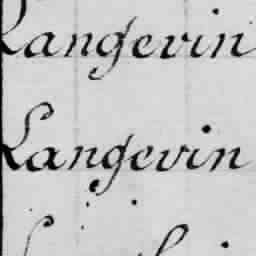 Langevin
Langevin